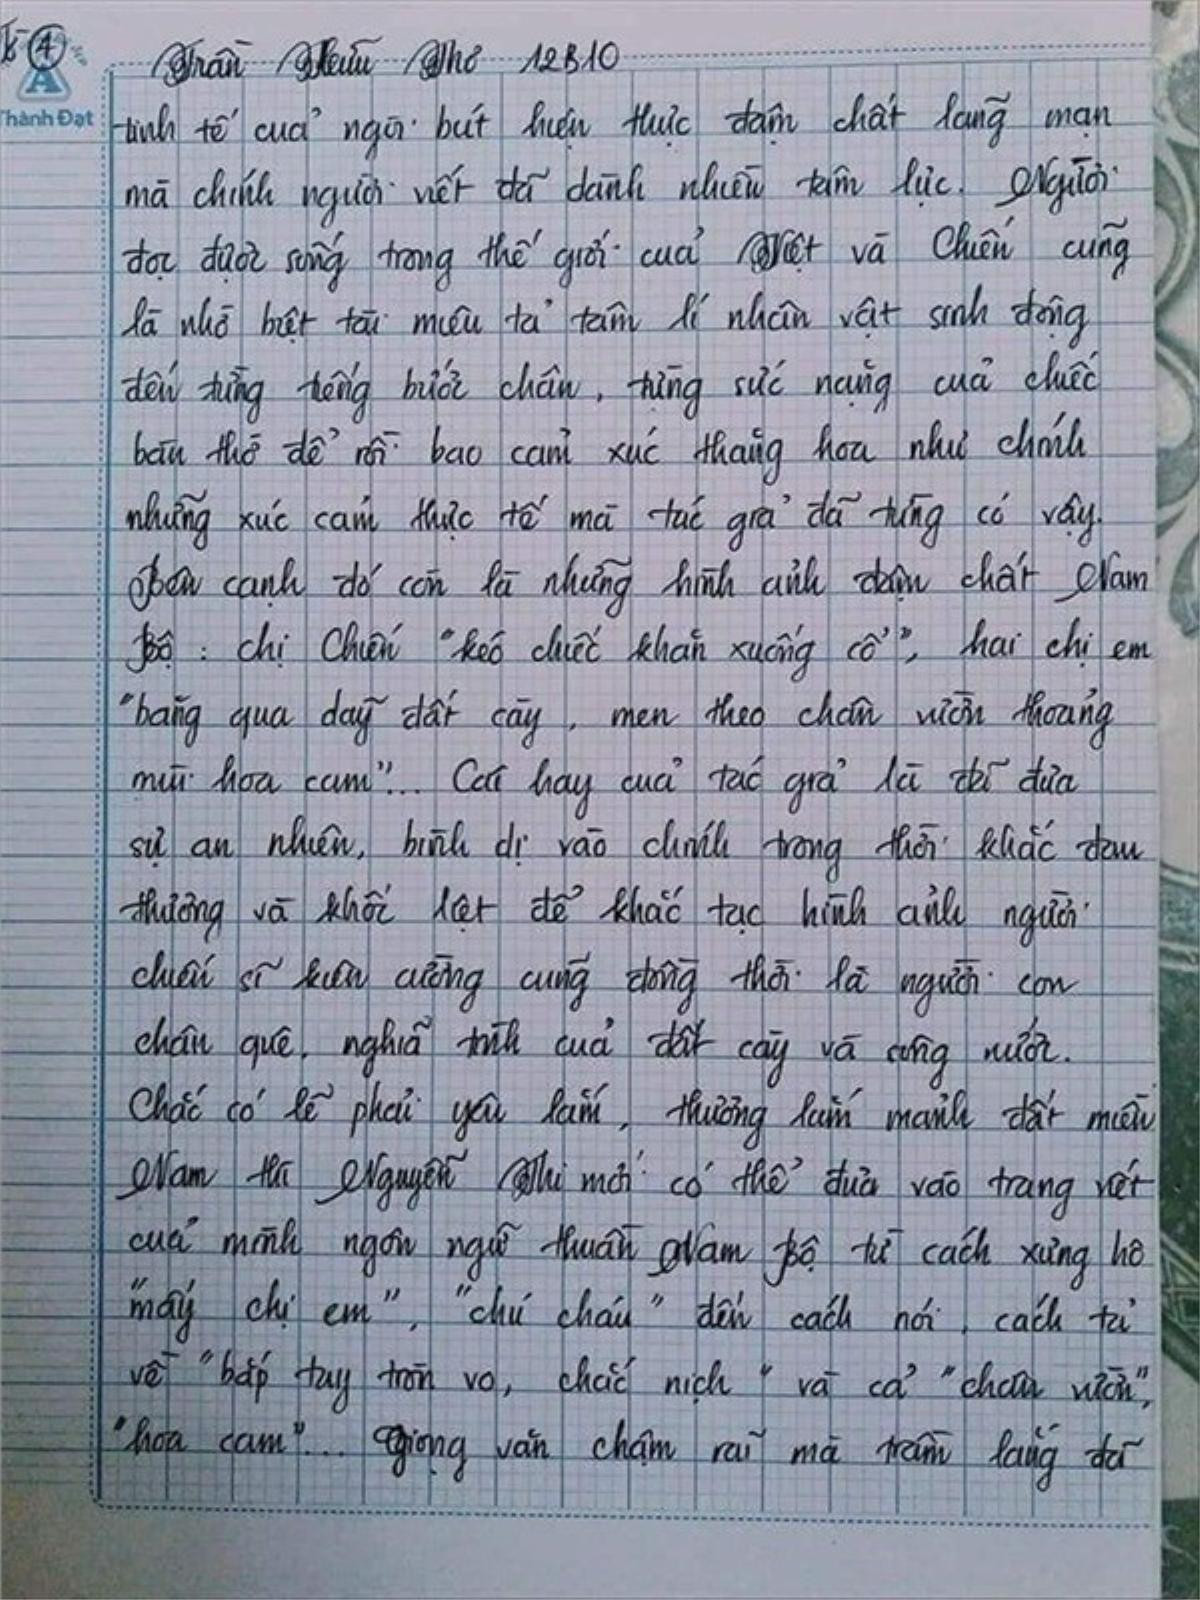 Tờ 4
Thành Đạt
Trần Hữu Thơ 12B10
tinh tế của ngòi bút hiện thực đậm chất lãng mạn
mà chính người viết đã dành nhiều tâm lực. Người
đọc được sống trong thế giới của Việt và Chiến cũng
là nhờ biệt tài miêu tả tâm lí nhân vật sinh động
đến từng tiếng bước chân, từng sức nặng của chiếc
bàn thờ để rồi bao cảm xúc thăng hoa như chính
những xúc cảm thực tế mà tác giả đã từng có vậy.
Bên cạnh đó còn là những hình ảnh đậm chất Nam
Bộ : chị Chiến "kéo chiếc khăn xuống cổ", hai chị em
"băng qua dãy đất cày, men theo chân vườn thoảng
mùi hoa cam"... Cái hay của tác giả là đã đưa
sự an nhiên, bình dị vào chính trong thời khắc đau
thương và khốc liệt để khắc tạc hình ảnh người
chiến sĩ kiên cường cũng đồng thời là người con
chân quê, nghĩa tình của đất cày và ruộng nước.
Chắc có lẽ phải yêu lắm, thương lắm mảnh đất miền
Nam thì Nguyễn Thi mới có thể đưa vào trang viết
của mình ngôn ngữ thuần Nam Bộ từ cách xưng hô
"mấy chị em", "chú cháu" đến cách nói, cách tả
về "bắp tay tròn vo, chắc nịch" và cả "chân vườn",
"hoa cam"... Giọng văn chậm rãi mà trầm lắng đã